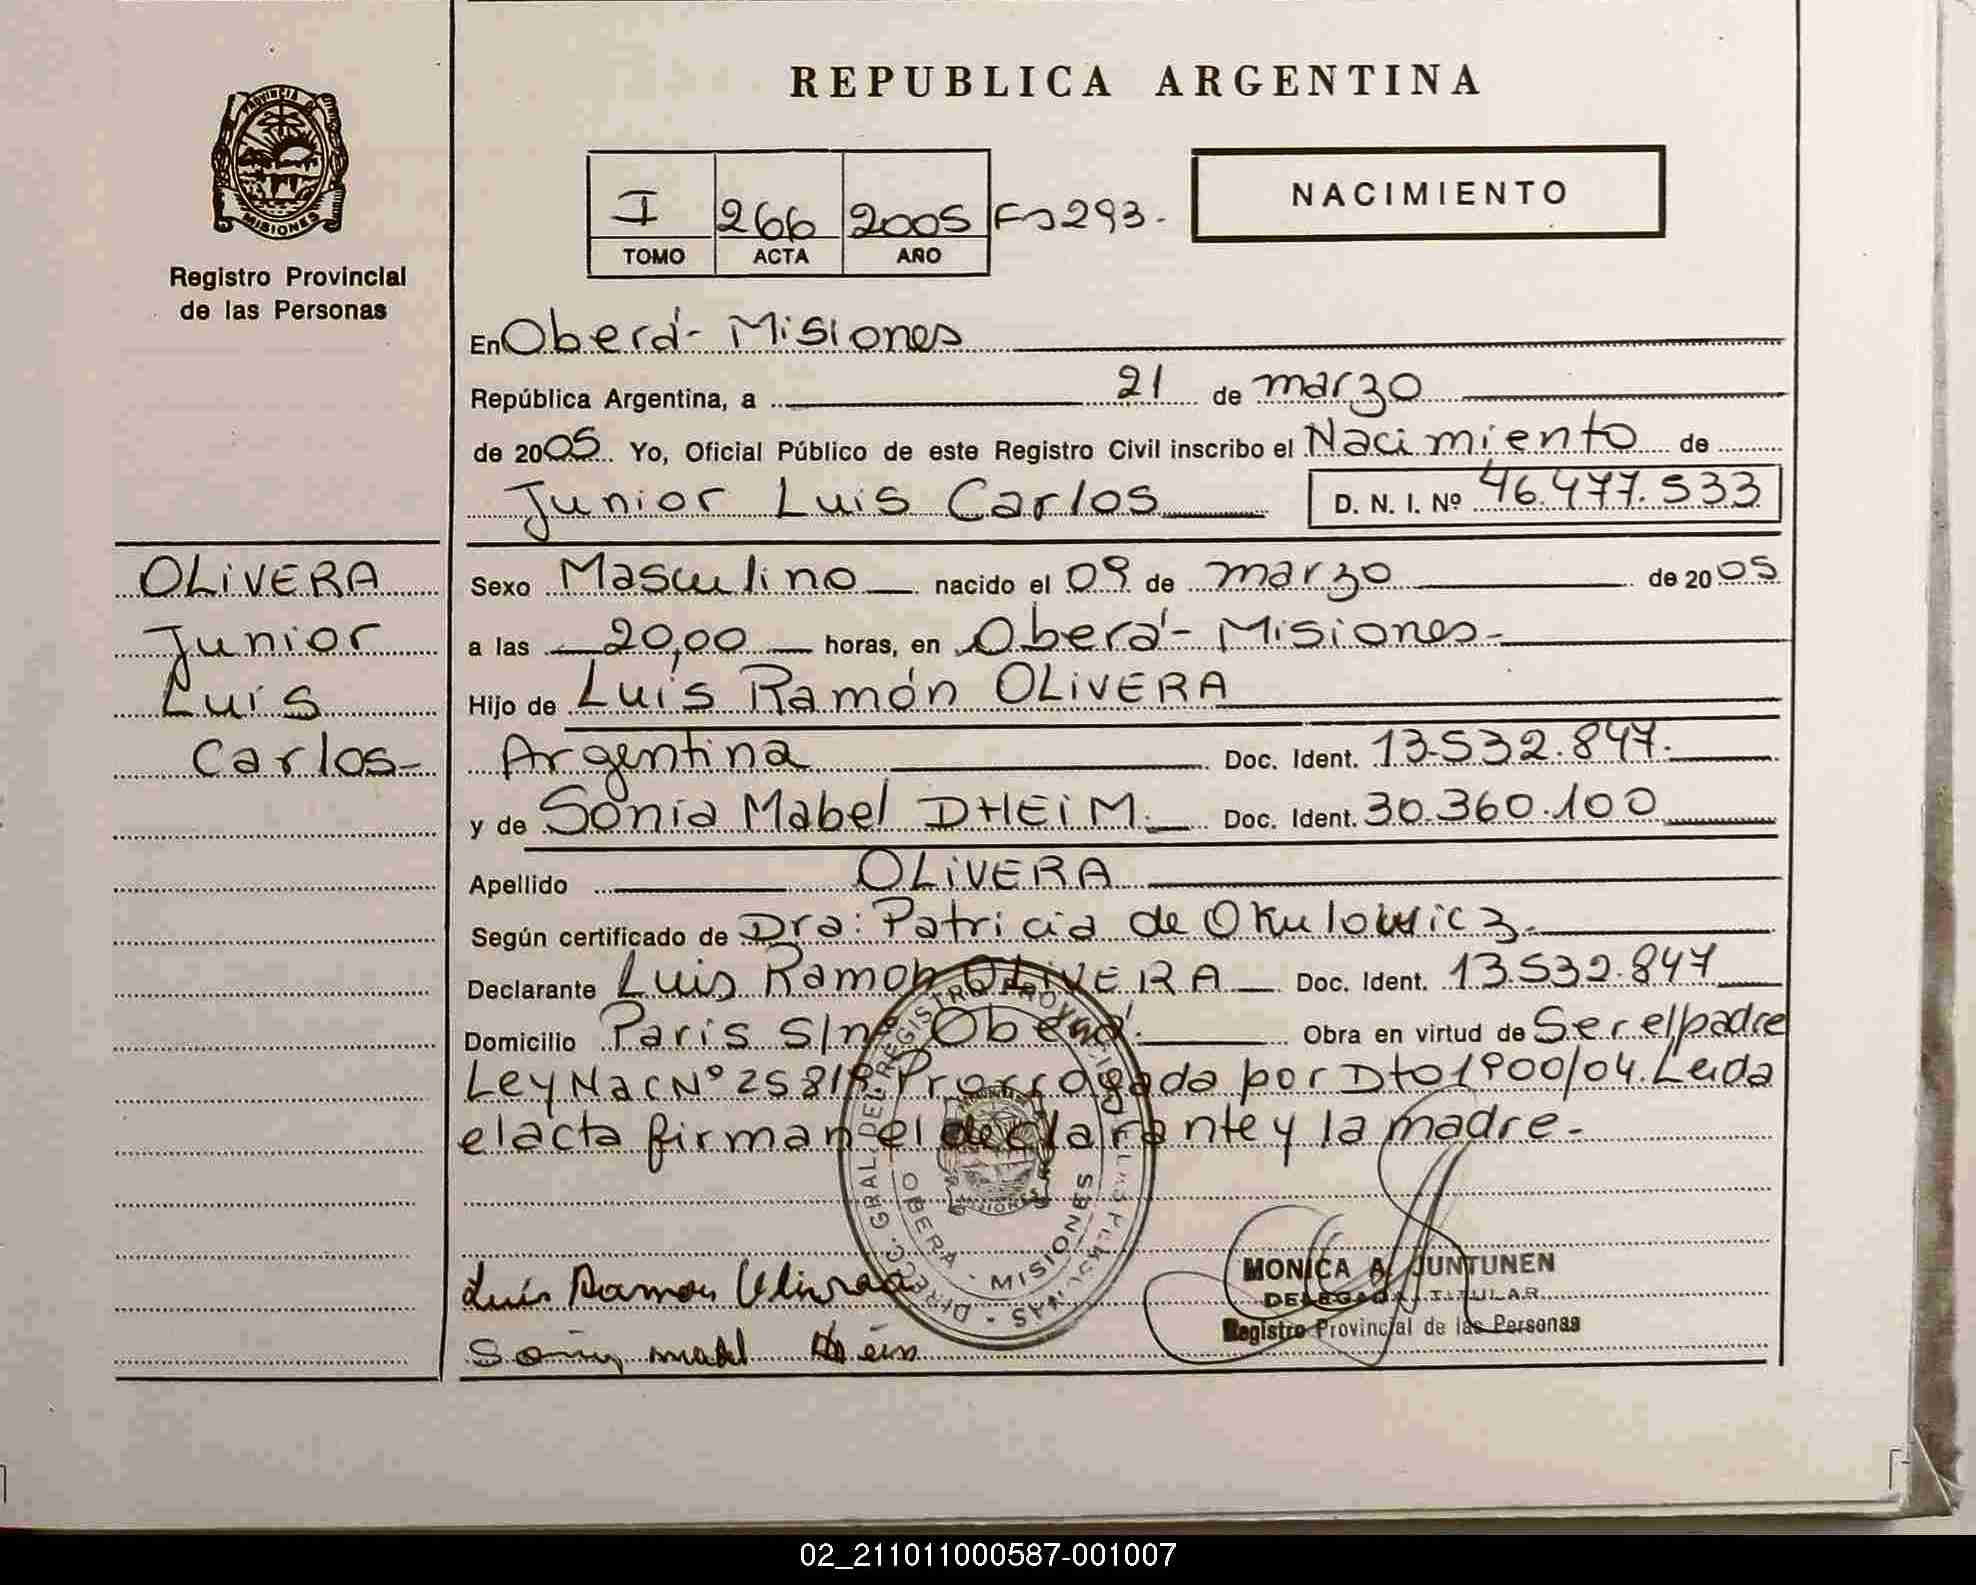 REPUBLICA ARGENTINA
PROVINCIA DE
MISIONES
Registro Provincial
de las Personas
I 266 2005 Fº 293.-
TOMO ACTA AÑO
NACIMIENTO
En Oberá - Misiones
República Argentina, a 21 de marzo
de 2005 Yo, Oficial Público de este Registro Civil inscribo el Nacimiento de
Junior Luis Carlos D. N. I. Nº 46.477.533
OLiVERA
Junior
Luis
Carlos-
Sexo Masculino nacido el 09 de marzo de 2005
a las 20,00 horas, en Oberá - Misiones-
Hijo de Luis Ramón OLiVERA
Argentina Doc. Ident. 13.532.847.
y de Sonia Mabel DHEiM. Doc. Ident. 30.360.100
Apellido OLiVERA
Según certificado de Dra: Patricia de Okulowicz.
Declarante Luis Ramon OLiVERA Doc. Ident. 13.532.847
Domicilio Paris S/n Oberá. Obra en virtud de Ser el padre
Ley Nac Nº 25819 Prorrogada por Dto 1900/04. Leida
el acta firman el declarante y la madre-
DIRECC. GRAL. DEL REGISTRO PROVINCIAL DE LAS PERSONAS
OBERÁ - MISIONES
Luis Ramon Olivera
MONICA A. JUNTUNEN
DELEGADA TITULAR
Registro Provincial de las Personas
02_211011000587-001007